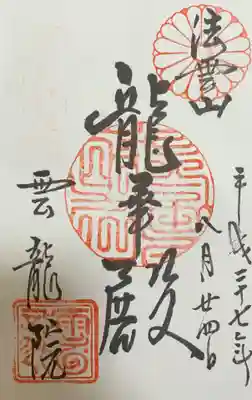 法雲山
平成二十七年
八月廿四日
龍華殿
雲龍院